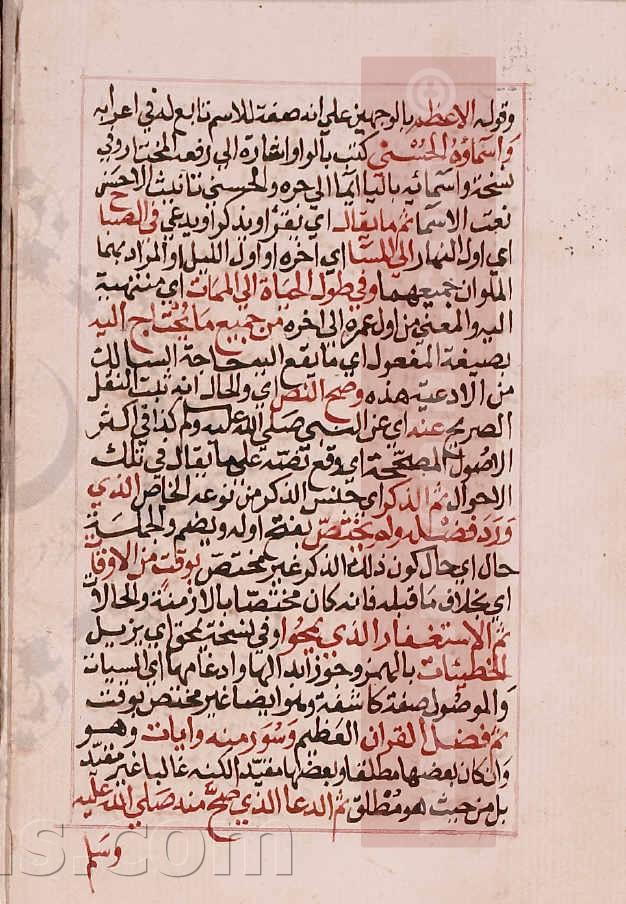 وقوله الاعظم بالوجهين على انه صفة للاسم تابع له في اعرابه
واسماؤه الحسنى كتب بالواو اشارة الى رفعه المختار وفي
نسخة واسمائه بالياء ايما الى جره والحسنى تانيث الاحسن
نعت الاسما ثم ما يقال اي يقرا ويذكر او يدعى في الصباح
اي اول النهار الى المسا اي اخره او اول الليل والمراد بهما
الملوان جميعهما وفي طول الحياة الى الممات اي منتهية
اليه والمعنى من اول عمره الى اخره من جميع ما يحتاج اليه
بصيغة المفعول اي ما يقع اليه حاجة السالك
من الادعية هذه وصح النص اي والحال انه ثبت النقل
الصريح عنه اي عن النبي صلى الله عليه وسلم كذا في اكثر
الاصول المصححة اي وقع نصه على ما يقال في تلك
الاحوال ثم الذكر اي جنس الذكر من نوعه الخاص الذي
ورد فضله ولم يختص بفتح اوله ويضم والجملة
حال اي حال كون ذلك الذكر غير مختص بوقت من الاوقات
اي بخلاف ما قبله فانه كان مختصا بالازمنة والحالات
ثم الاستغفار الذي يمحوا وفي نسخة يمحق اي يزيل
الخطيئات بالهمز وجوز ابدالها وادغامها اي السيات
والموصول صفة كاشفة وهو ايضا غير مختص بوقت
ثم فضل القران العظيم وسور منه وايات وهو
وان كان بعضها مطلقا وبعضها مقيد الكنه غالبا غير مقيد
بل من حيث هو مطلق ثم الدعا الذي صح منه صلى الله عليه
وسلم
ns.com